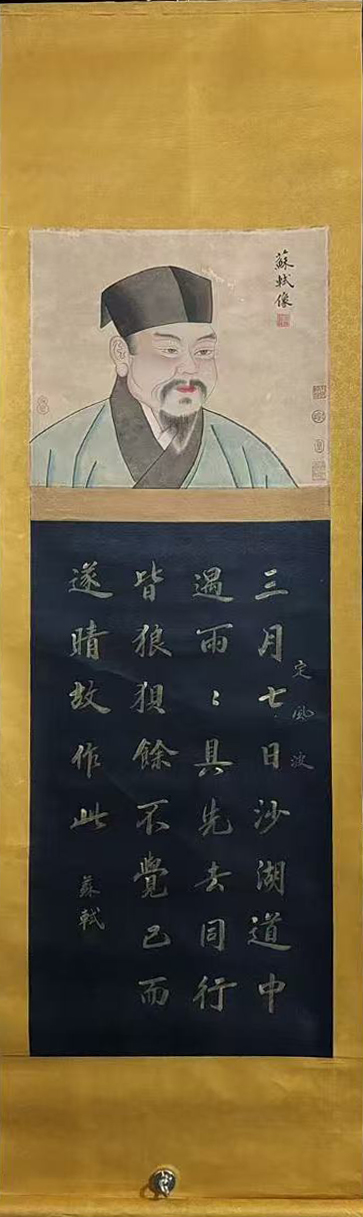 蘇軾像
定風波
三月七日沙湖道中
遇雨〻具先去同行
皆狼狽餘不覺已而
遂晴故作此
蘇軾